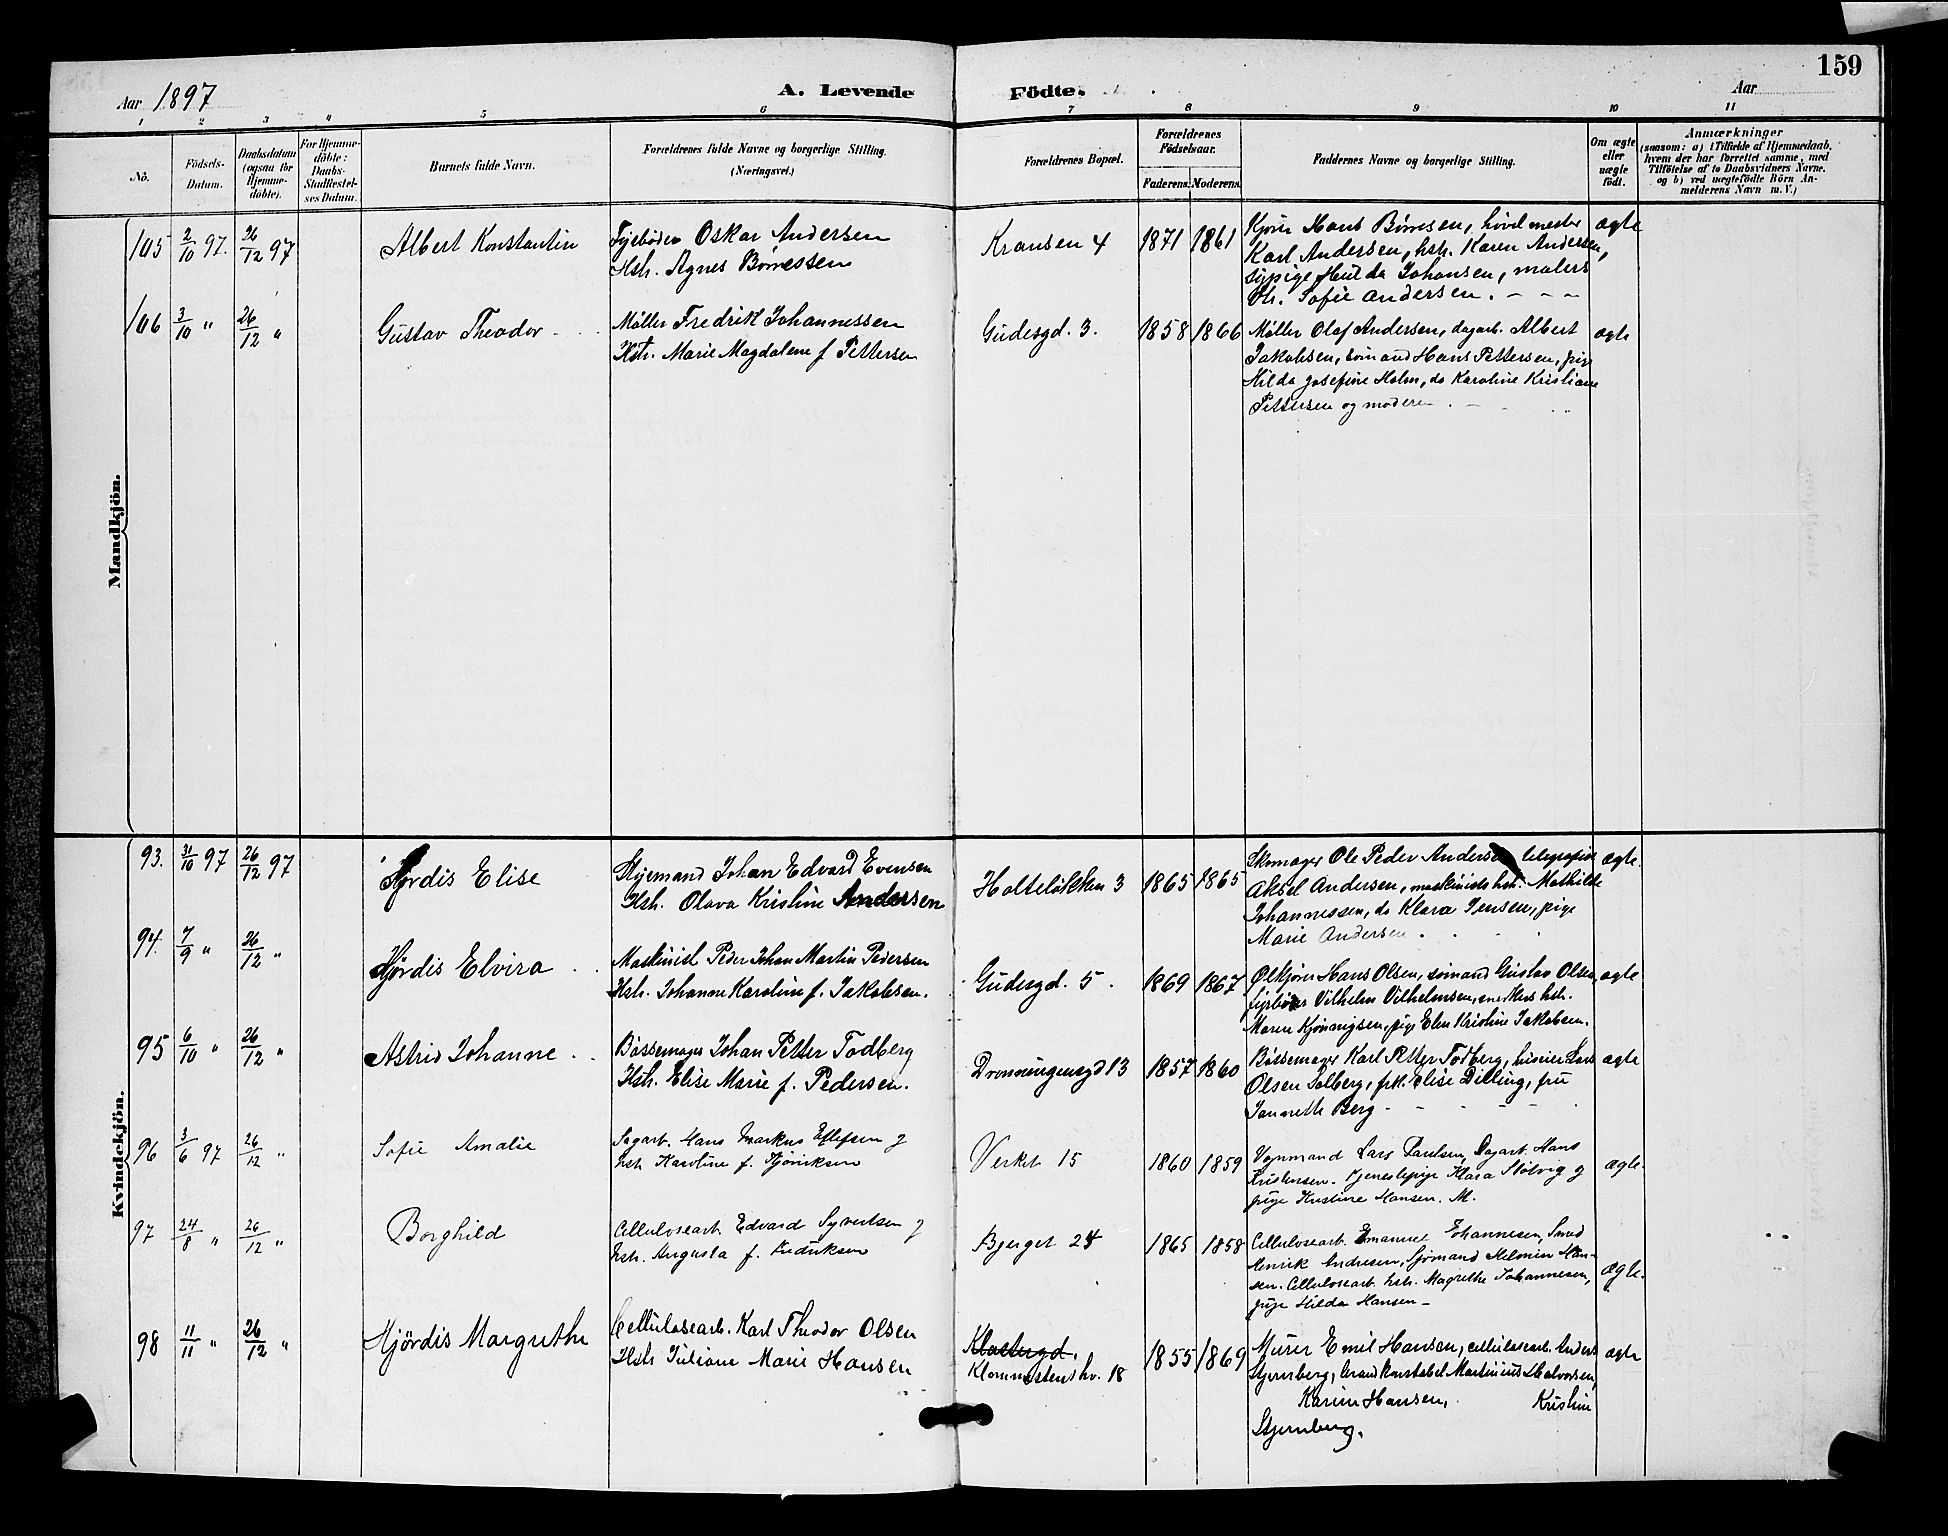 159
Aar 1897
A. Levende
Födte.
Aar
1 2 3 4 5 6 7 8 9 10 11
No.
Födsels-Datum.
Daabsdatum (ogsaa for Hjemme-döbte).
For Hjemme-döbte: Daabs-Stadfæstel-ses Datum.
Barnets fulde Navn.
Forældrenes fulde Navne og borgerlige Stilling.
(Næringsvei.)
Forældrenes Bopæl.
Forældrenes Födselsaar.
Faderens. Moderens.
Faddernes Navne og borgerlige Stilling.
Om ægte eller uægte født.
Anmærkninger
(saasom: a) i Tilfælde af Hjemmedaab, hvem der har forrettet samme, med Tilföielse af to Daabsvidners Navne, og b) ved uægtefödte Börn An-melderens Navn m. V.)
Mandkjön.
105 2/10 97. 26/12 97 Albert Konstantin
Fyrbøder Oskar Andersen
Hstr. Agnes Børresen
Kransen 4 1871 1861
Kjører Hans Børresen, hovlmester
Karl Andersen, hstr. Karen Andersen,
sypige Hulda Johansen, malers
hstr. Sofie Andersen.
ægte
106 3/10 " 26/12 " Gustav Theodor
Møller Fredrik Johannessen
Hstr. Marie Magdalene f. Pettersen
Gudesgd. 3. 1858 1866
Møller Olaf Andersen, dagarb. Albert
Jakobsen, sømand Hans Pettersen, pige
Hilda Josefine Holm, do Karoline Kristiane
Pettersen og moderen
ægte
Kvindekjön.
93. 31/10 97 26/12 97 Hjørdis Elise
Styrmand Johan Edvard Evensen
Hstr. Olava Kristine Andersen
Holteløkken 3 1865 1865
Skomager Ole Peder Andersen telegrafist
Aksel Andersen, maskinists hstr. Mathilde
Johannessen, do Klara Jensen, pige
Marie Andersen
ægte.
94. 7/9 " 26/12 " Hjørdis Elvira
Maskinist Peder Johan Martin Pedersen
Hstr. Johanne Karoline f. Jakobsen.
Gudesgd. 5. 1869 1867
Ølkjører Hans Olsen, sømand Gustav Olsen,
fyrbøder Vilhelm Vilhelmsen, snedkers hstr.
Maren Kjønnigsen, pige Elen Kristine Jakobsen.
ægte
95 6/10 " 26/12 " Astrid Johanne
Bøssemager Johan Petter Todberg
Hstr. Elise Marie f. Pedersen.
Dronningensgd 13 1857 1860
Bøssemager Karl Petter Todberg, huseier Lars
Olsen Solberg, frk. Elise Dilling, fru
Janneth Berg
ægte
96 3/6 97 26/12 " Sofie Amalie
Sagarb. Hans Markus Ellefsen og
hstr. Karoline f. Hjøriksen
Verket 15 1860 1859
Vognmand Lars Paulsen, Dagarb. Hans
Kristensen. Tjenestepige Klara Stølvig og
pige Kristine Hansen. M.
ægte.
97 24/8 " 26/12 " Borghild
Cellulosearb. Edvard Syvertsen og
hstr. Augusta f. Fredriksen
Bjerget 24 1865 1858
Cellulosearb. Emanuel Johannesen, Smed
Henrik Andresen, Sjømand Helmin Han-
sen. Cellulosearb. hstr. Magrethe Johannesen,
pige Hilda Hansen
ægte.
98 11/11 " 26/12 " Hjördis Margrethe
Cellulosearb. Karl Theodor Olsen
Hstr Juliane Marie Hansen
Klostergd.
Klommestenshv. 18 1855 1869
Murer Emil Hansen, cellulosearb. Anders
Stjernberg, brandkonstabel Martinius Halvorsen,
Karine Hansen, Kristine
Stjernberg.
ægte